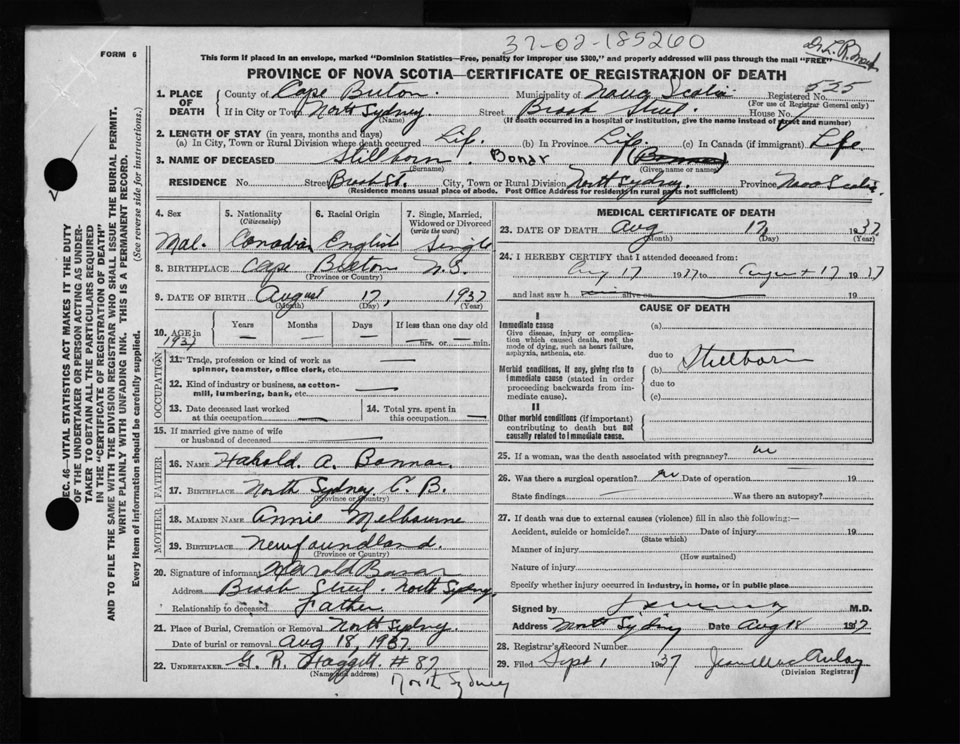 37-02-185260
FORM 6
This form if placed in an envelope, marked "Dominion Statistics—Free, penalty for improper use $300," and properly addressed will pass through the mail "FREE"
PROVINCE OF NOVA SCOTIA—CERTIFICATE OF REGISTRATION OF DEATH
1. PLACE OF DEATH County of Cape Breton Municipality of Nova Scotia Registered No. 525
(For use of Registrar General only)
If in City or Town North Sydney Street Brook Street House No.
(Name) (If death occurred in a hospital or institution, give the name instead of street and number)
2. LENGTH OF STAY (in years, months and days)
(a) In City, Town or Rural Division where death occurred Life (b) In Province Life (c) In Canada (if immigrant) Life
3. NAME OF DECEASED Stillborn Bonar
(Surname) (Given name or names)
RESIDENCE No. Street Brook St. City, Town or Rural Division North Sydney Province Nova Scotia
(Residence means usual place of abode. Post Office Address for residents in rural parts not sufficient)
4. Sex Mal.
5. Nationality (Citizenship) Canadian
6. Racial Origin English
7. Single, Married, Widowed or Divorced (write the word) Single
8. BIRTHPLACE Cape Breton N.S.
(Province or Country)
9. DATE OF BIRTH August 17, 1937
(Month) (Day) (Year)
10. AGE in Years Months Days If less than one day old
1937 — — — hrs. or min.
OCCUPATION
11. Trade, profession or kind of work as spinner, teamster, office clerk, etc. —
12. Kind of industry or business, as cotton-mill, lumbering, bank, etc. —
13. Date deceased last worked at this occupation —
14. Total yrs. spent in this occupation —
15. If married give name of wife or husband of deceased —
FATHER
16. NAME Harold A. Bonnar
17. BIRTHPLACE North Sydney C. B.
(Province or Country)
MOTHER
18. MAIDEN NAME Annie Melbourne
19. BIRTHPLACE Newfoundland.
(Province or Country)
20. Signature of informant Harold Bonar
Address Brook Street North Sydney
Relationship to deceased Father
21. Place of Burial, Cremation or Removal North Sydney
Date of burial or removal Aug 18, 1937
22. UNDERTAKER G. R. Haggett #87
(Name and address)
North Sydney
MEDICAL CERTIFICATE OF DEATH
23. DATE OF DEATH Aug 17 1937
(Month) (Day) (Year)
24. I HEREBY CERTIFY that I attended deceased from:
Aug 17 1937 to August 17 1937
and last saw h alive on 19
CAUSE OF DEATH
I
Immediate cause (a)
Give disease, injury or complication which caused death, not the mode of dying, such as heart failure, asphyxia, asthenia, etc.
due to
Morbid conditions, if any, giving rise to immediate cause (stated in order proceeding backwards from immediate cause).
(b) Stillborn
due to
(c)
II
Other morbid conditions (if important) contributing to death but not causally related to immediate cause.
25. If a woman, was the death associated with pregnancy? no
26. Was there a surgical operation? no Date of operation 19
State findings — Was there an autopsy?
27. If death was due to external causes (violence) fill in also the following:—
Accident, suicide or homicide? Date of injury 19
(State which)
Manner of injury
(How sustained)
Nature of injury
Specify whether injury occurred in industry, in home, or in public place
Signed by M.D.
Address North Sydney Date Aug 18 1937
28. Registrar's Record Number
29. Filed Sept 1 1937
(Division Registrar)
SEC. 46—VITAL STATISTICS ACT MAKES IT THE DUTY
OF THE UNDERTAKER OR PERSON ACTING AS UNDER-
TAKER TO OBTAIN ALL THE PARTICULARS REQUIRED
IN THE "CERTIFICATE OF REGISTRATION OF DEATH"
AND TO FILE THE SAME WITH THE DIVISION REGISTRAR WHO SHALL ISSUE THE BURIAL PERMIT.
WRITE PLAINLY WITH UNFADING INK. THIS IS A PERMANENT RECORD.
Every item of information should be carefully supplied. (See reverse side for instructions.)